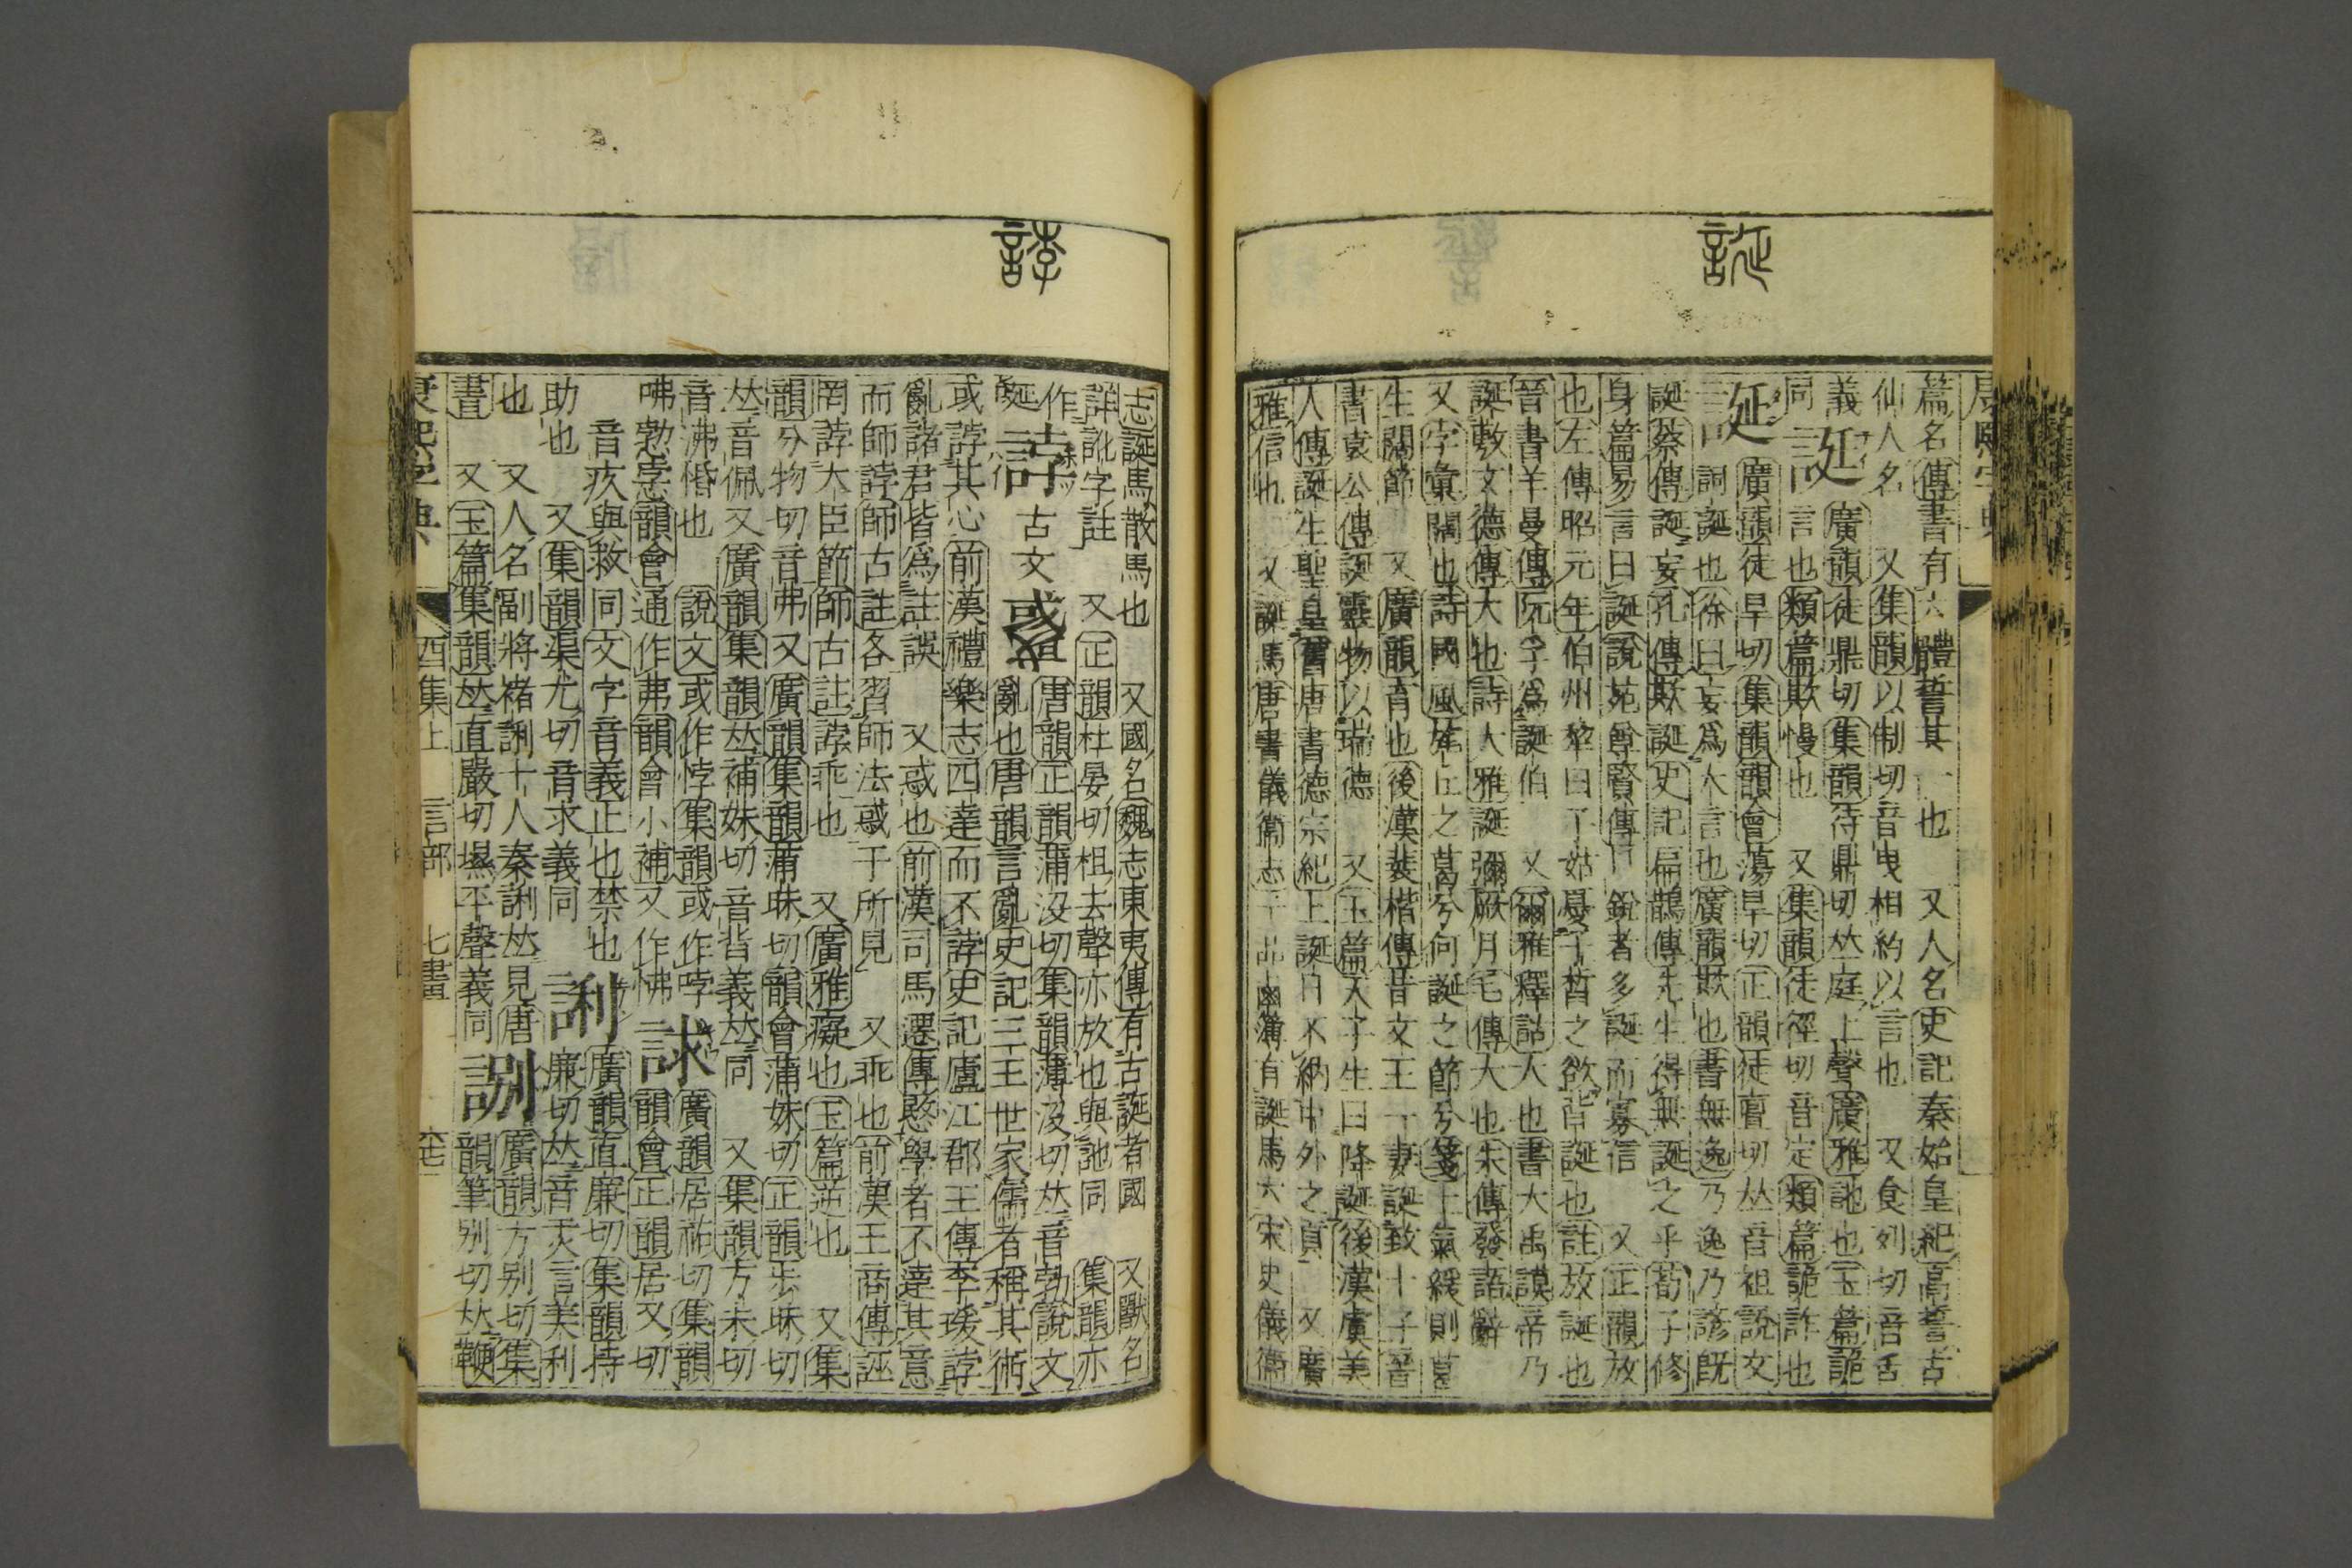 誕
康熙字典
篇名傳書有六體誓其一也 又人名史記秦始皇紀高誓古
仙人名 又集韻以制切音曳相約以言也 又食列切音舌
義同
誔
廣韻徒鼎切集韻待鼎切𠀤庭上聲廣雅訑也玉篇詭
言也類篇欺慢也 又集韻徒徑切音定類篇詭詐也
誕
廣韻徒旱切集韻韻會蕩旱切正韻徒亶切𠀤音袒說文
詞誕也徐曰妄爲大言也廣韻欺也書無逸乃逸乃諺旣
誕蔡傳誕妄孔傳欺誕史記扁鵲傳先生得無誕之乎荀子修
身篇易言曰誕說苑尊賢傳口銳者多誕而寡信 又正韻放
也左傳昭元年伯州犂曰子姑憂子晳之欲背誕也註放誕也
晉書羊曼傳阮孚爲誕伯 又爾雅釋詁大也書大禹謨帝乃
誕敷文德傳大也詩大雅誕彌厥月毛傳大也朱傳發語辭
又字彙闊也詩國風旄丘之葛兮何誕之節兮箋土氣緩則葛
生闊節 又廣韻育也後漢裴楷傳昔文王一妻誕致十子晉
書袁公傳誕靈物以瑞德 又玉篇天子生曰降誕後漢虞美
人傳誕生聖皇舊唐書德宗紀上誕日不納中外之貢 又廣
雅信也 又誕馬唐書儀衞志一品鹵簿有誕馬六宋史儀衞
誖
志誕馬散馬也 又國名魏志東夷傳有古誕者國 又獸名
詳訛字註 又正韻杜晏切柦去聲亦放也與訑同 集韻亦
作𧥢
誖
古文𢨋𧭭
唐韻正韻蒲沒切集韻薄沒切𠀤音勃說文
亂也唐韻言亂史記三王世家儒者稱其術
或誖其心前漢禮樂志四達而不誖史記廬江郡王傳李瑗誖
亂諸君皆爲註誤 又惑也前漢司馬遷傳愍學者不達其意
而師誖師古註各習師法惑于所見 又乖也前漢王商傳誣
罔誖大臣節師古註誖乖也 又廣雅癡也玉篇逆也 又集
韻分物切音弗又廣韻集韻蒲昧切韻會蒲妹切正韻步昧切
𠀤音佩又廣韻集韻𠀤補妹切音背義𠀤同 又集韻方未切
音沸惛也 說文或作悖集韻或作哱
咈勃㤄韻會通作弗韻會小補又作怫
䛮
廣韻居祐切集韻
韻會正韻居又切
音疚與救同文字音義正也禁也
助也 又集韻渠尤切音求義同
誗
廣韻直廉切集韻持
廉切𠀤音灻言美利
也 又人名副將褚誗十人秦誗𠀤見唐
書 又玉篇集韻𠀤直嚴切𡑿平聲義同
䛒
廣韻方别切集
韻筆别切𠀤鞭
康熙字典 酉集上 言部 七畫